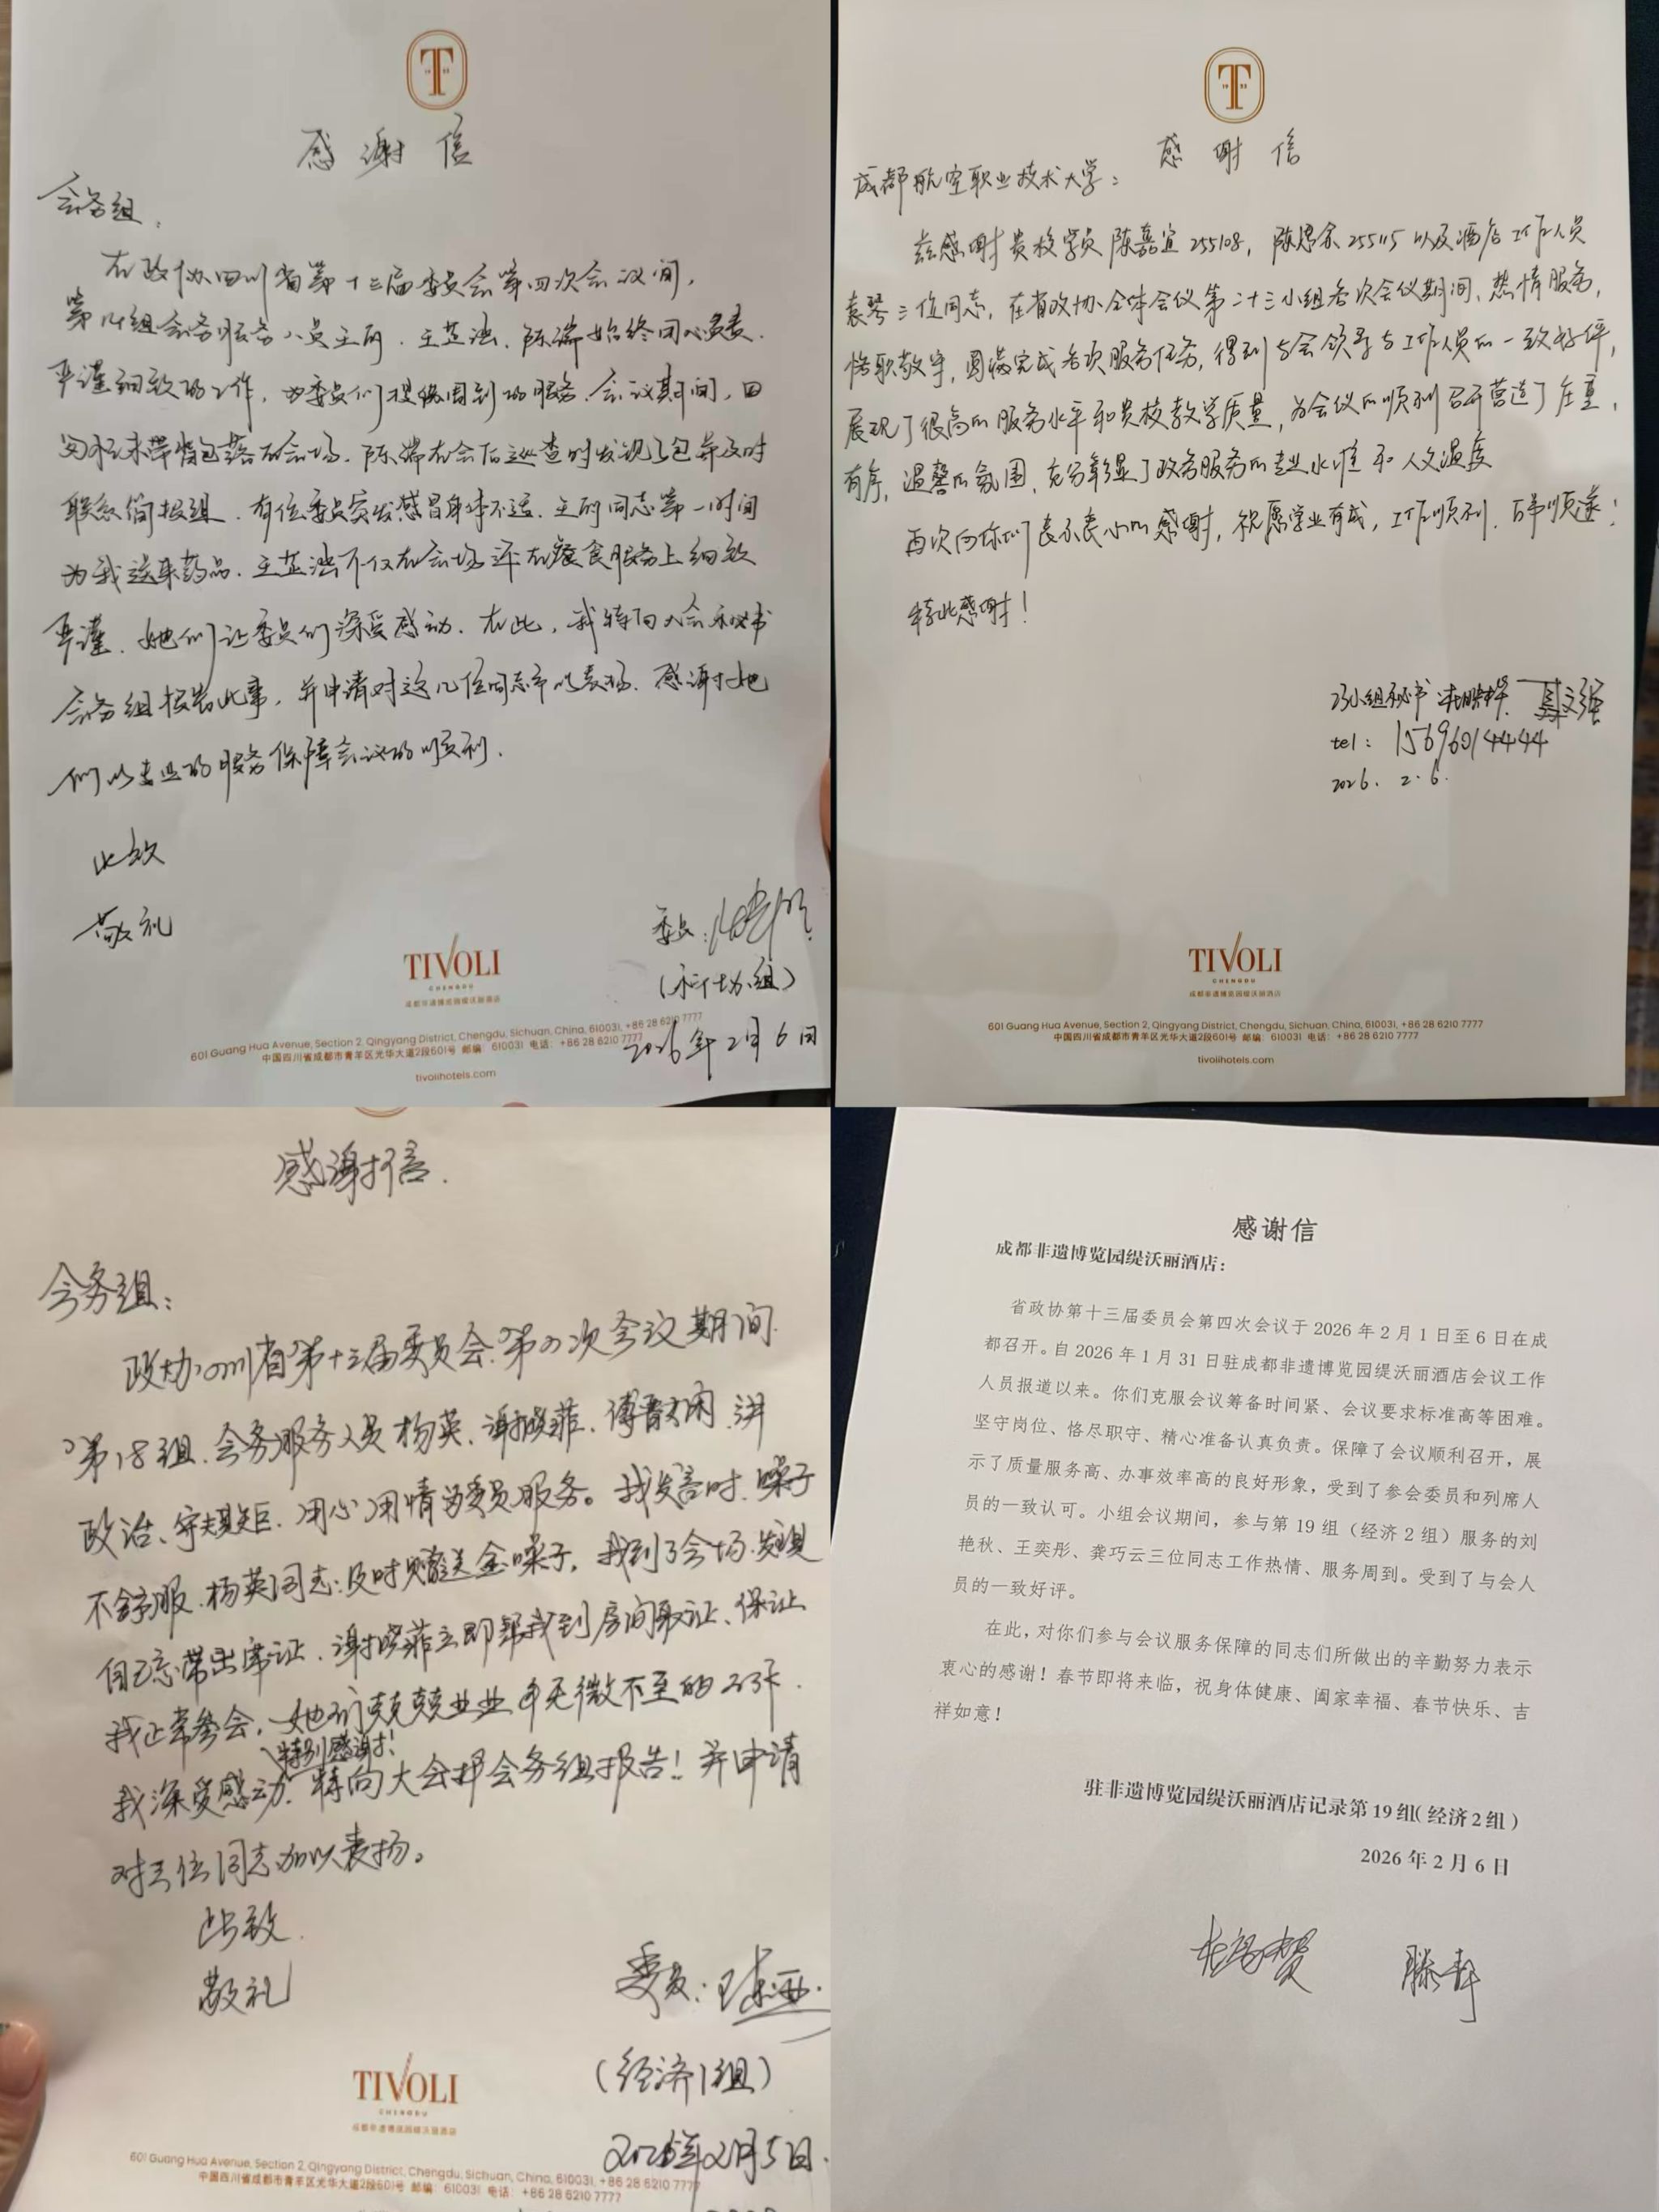 感谢信
会务组：
在政协四川省第十三届委员会第四次会议间，
第14组会务服务人员王 、王芷 、陈 始终用心负责、
严谨细致的工作，为委员们提供周到的服务。会议期间，因
将包落在会场，陈 在会后巡查时发现了包并及时
联系简报组。有位委员突发感冒身体不适，王 同志第一时间
为我送来药品。王芷 不仅在会场还在餐食服务上细致
严谨。她们让委员们深受感动。在此，我特向大会秘书
会务组报告此事，并申请对这几位同志予以表扬。感谢她
们以专业的服务保障会议的顺利。
此致
敬礼
委员：
（科协组）
2026年2月6日
TIVOLI
CHENGDU
成都非遗博览园缇沃丽酒店
601 Guang Hua Avenue, Section 2, Qingyang District, Chengdu, Sichuan, China, 610031, +86 28 6210 7777
中国四川省成都市青羊区光华大道2段601号 邮编：610031 电话：+86 28 6210 7777
tivolihotels.com
感谢信
成都航空职业技术大学：
兹感谢贵校学员陈嘉宜255108，陈思余255115以及酒店工作人员
袁琴三位同志，在省政协全体会议第二十三小组各次会议期间，热情服务，
恪职敬守，圆满完成各项服务任务，得到与会领导与工作人员的一致好评，
展现了很高的服务水平和贵校教学质量，为会议的顺利召开营造了庄重，
有序，温馨的氛围，充分彰显了政务服务的专业水准和人文温度
再次向你们表示衷心的感谢，祝愿学业有成，工作顺利，百事顺遂！
特此感谢！
23小组秘书
tel：15696014444
2026.2.6.
TIVOLI
CHENGDU
成都非遗博览园缇沃丽酒店
601 Guang Hua Avenue, Section 2, Qingyang District, Chengdu, Sichuan, China, 610031, +86 28 6210 7777
中国四川省成都市青羊区光华大道2段601号 邮编：610031 电话：+86 28 6210 7777
tivolihotels.com
感谢信.
会务组：
政协四川省第十三届委员会第四次会议期间
第18组、会务服务人员杨英、谢晓菲、傅 闲、讲
政治、守规矩、用心用情为委员服务。我发言时、嗓子
不舒服、杨英同志及时赠送金嗓子，我到了会场发现
自己忘带出席证、谢晓菲立即帮我到房间取证、保证
我正常参会，她们兢兢业业 无微不至的
特别感谢！
我深受感动。特向大会 会务组报告！并申请
对三位同志加以表扬。
此致
敬礼
委员：
（经济1组）
2026年2月5日.
TIVOLI
CHENGDU
成都非遗博览园缇沃丽酒店
601 Guang Hua Avenue, Section 2, Qingyang District, Chengdu, Sichuan, China, 610031, +86 28 6210 7777
中国四川省成都市青羊区光华大道2段601号 邮编：610031 电话：+86 28 6210 7777
感谢信
成都非遗博览园缇沃丽酒店：
省政协第十三届委员会第四次会议于2026年2月1日至6日在成
都召开。自2026年1月31日驻成都非遗博览园缇沃丽酒店会议工作
人员报道以来。你们克服会议筹备时间紧、会议要求标准高等困难。
坚守岗位、恪尽职守、精心准备认真负责。保障了会议顺利召开，展
示了质量服务高、办事效率高的良好形象，受到了参会委员和列席人
员的一致认可。小组会议期间，参与第19组（经济2组）服务的刘
艳秋、王奕彤、龚巧云三位同志工作热情、服务周到。受到了与会人
员的一致好评。
在此，对你们参与会议服务保障的同志们所做出的辛勤努力表示
衷心的感谢！春节即将来临，祝身体健康、阖家幸福、春节快乐、吉
祥如意！
驻非遗博览园缇沃丽酒店记录第19组（经济2组）
2026年2月6日